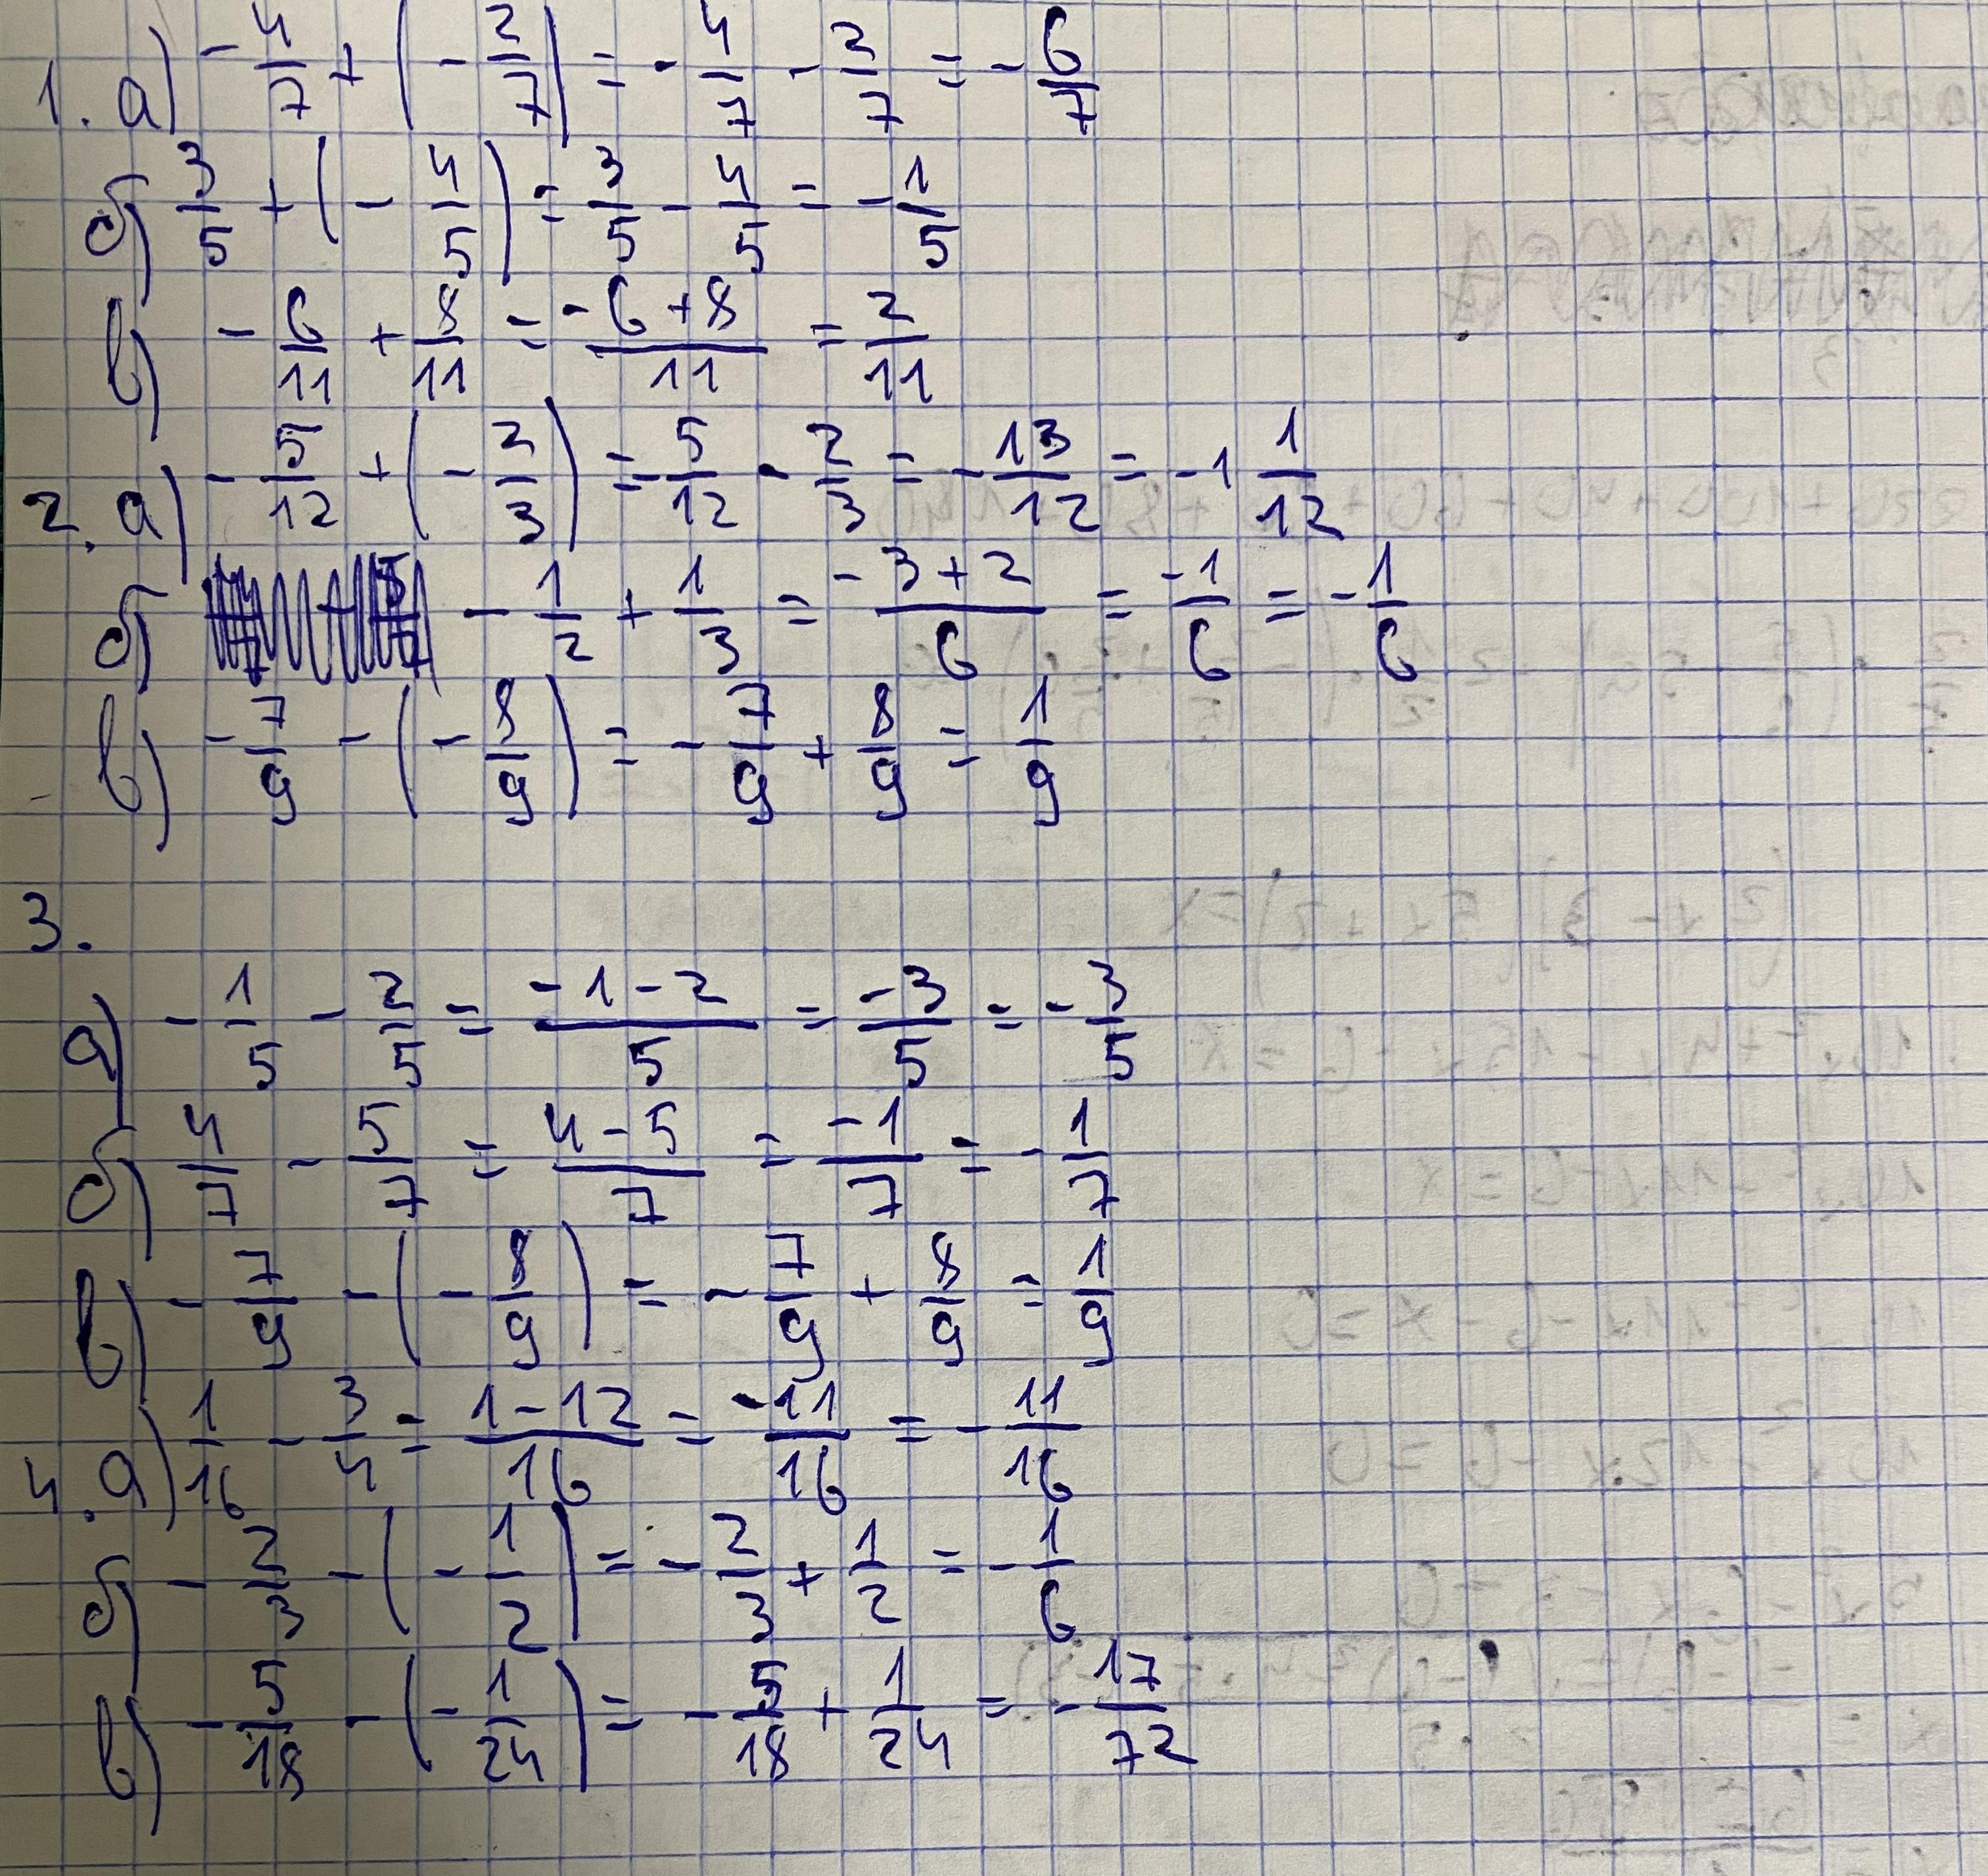 1. а) -4/7 + (-2/7) = -4/7 - 2/7 = -6/7
б) 3/5 + (-4/5) = 3/5 - 4/5 = -1/5
в) -6/11 + 8/11 = (-6+8)/11 = 2/11
2. а) -5/12 + (-2/3) = -5/12 - 2/3 = -13/12 = -1 1/12
б -1/2 + 1/3 = (-3+2)/6 = -1/6 = -1/6
в) -7/9 - (-8/9) = -7/9 + 8/9 = 1/9
3.
а) -1/5 - 2/5 = (-1-2)/5 = -3/5 = -3/5
б) 4/7 - 5/7 = (4-5)/7 = -1/7 = -1/7
в) -7/9 - (-8/9) = -7/9 + 8/9 = 1/9
4. а) 1/16 - 3/4 = (1-12)/16 = -11/16 = -11/16
б) -2/3 - (-1/2) = -2/3 + 1/2 = -1/6
в) -5/18 - (-1/24) = -5/18 + 1/24 = -17/72